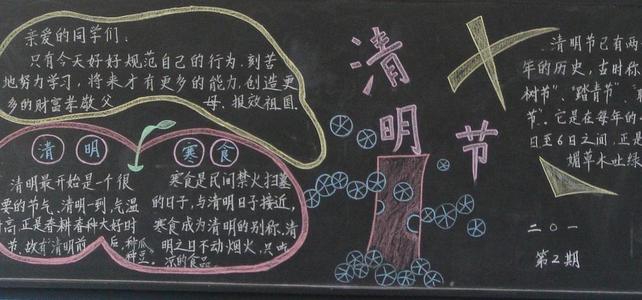 亲爱的同学们:
只有今天好好规范自己的行为,刻苦
地努力学习,将来才有更多的能力,创造更
多的财富孝敬父 母,报效祖国.
清明
清明最开始是一个很
要的节气,清明一到,气温
高,正是春耕春种大好时
节,故有"清明前 后,种瓜
种豆。
寒食
寒食是民间禁火扫墓
的日子,与清明日子接近,
寒食成为清明的别称.清
明之日不动烟火,只吃
凉的食品
清明节
清明节已有两
年的历史,古时称
树节"、"踏青节"、
节、它是在每年的
日至6日之间,正是
媚草木吐绿
二〇一
第2期